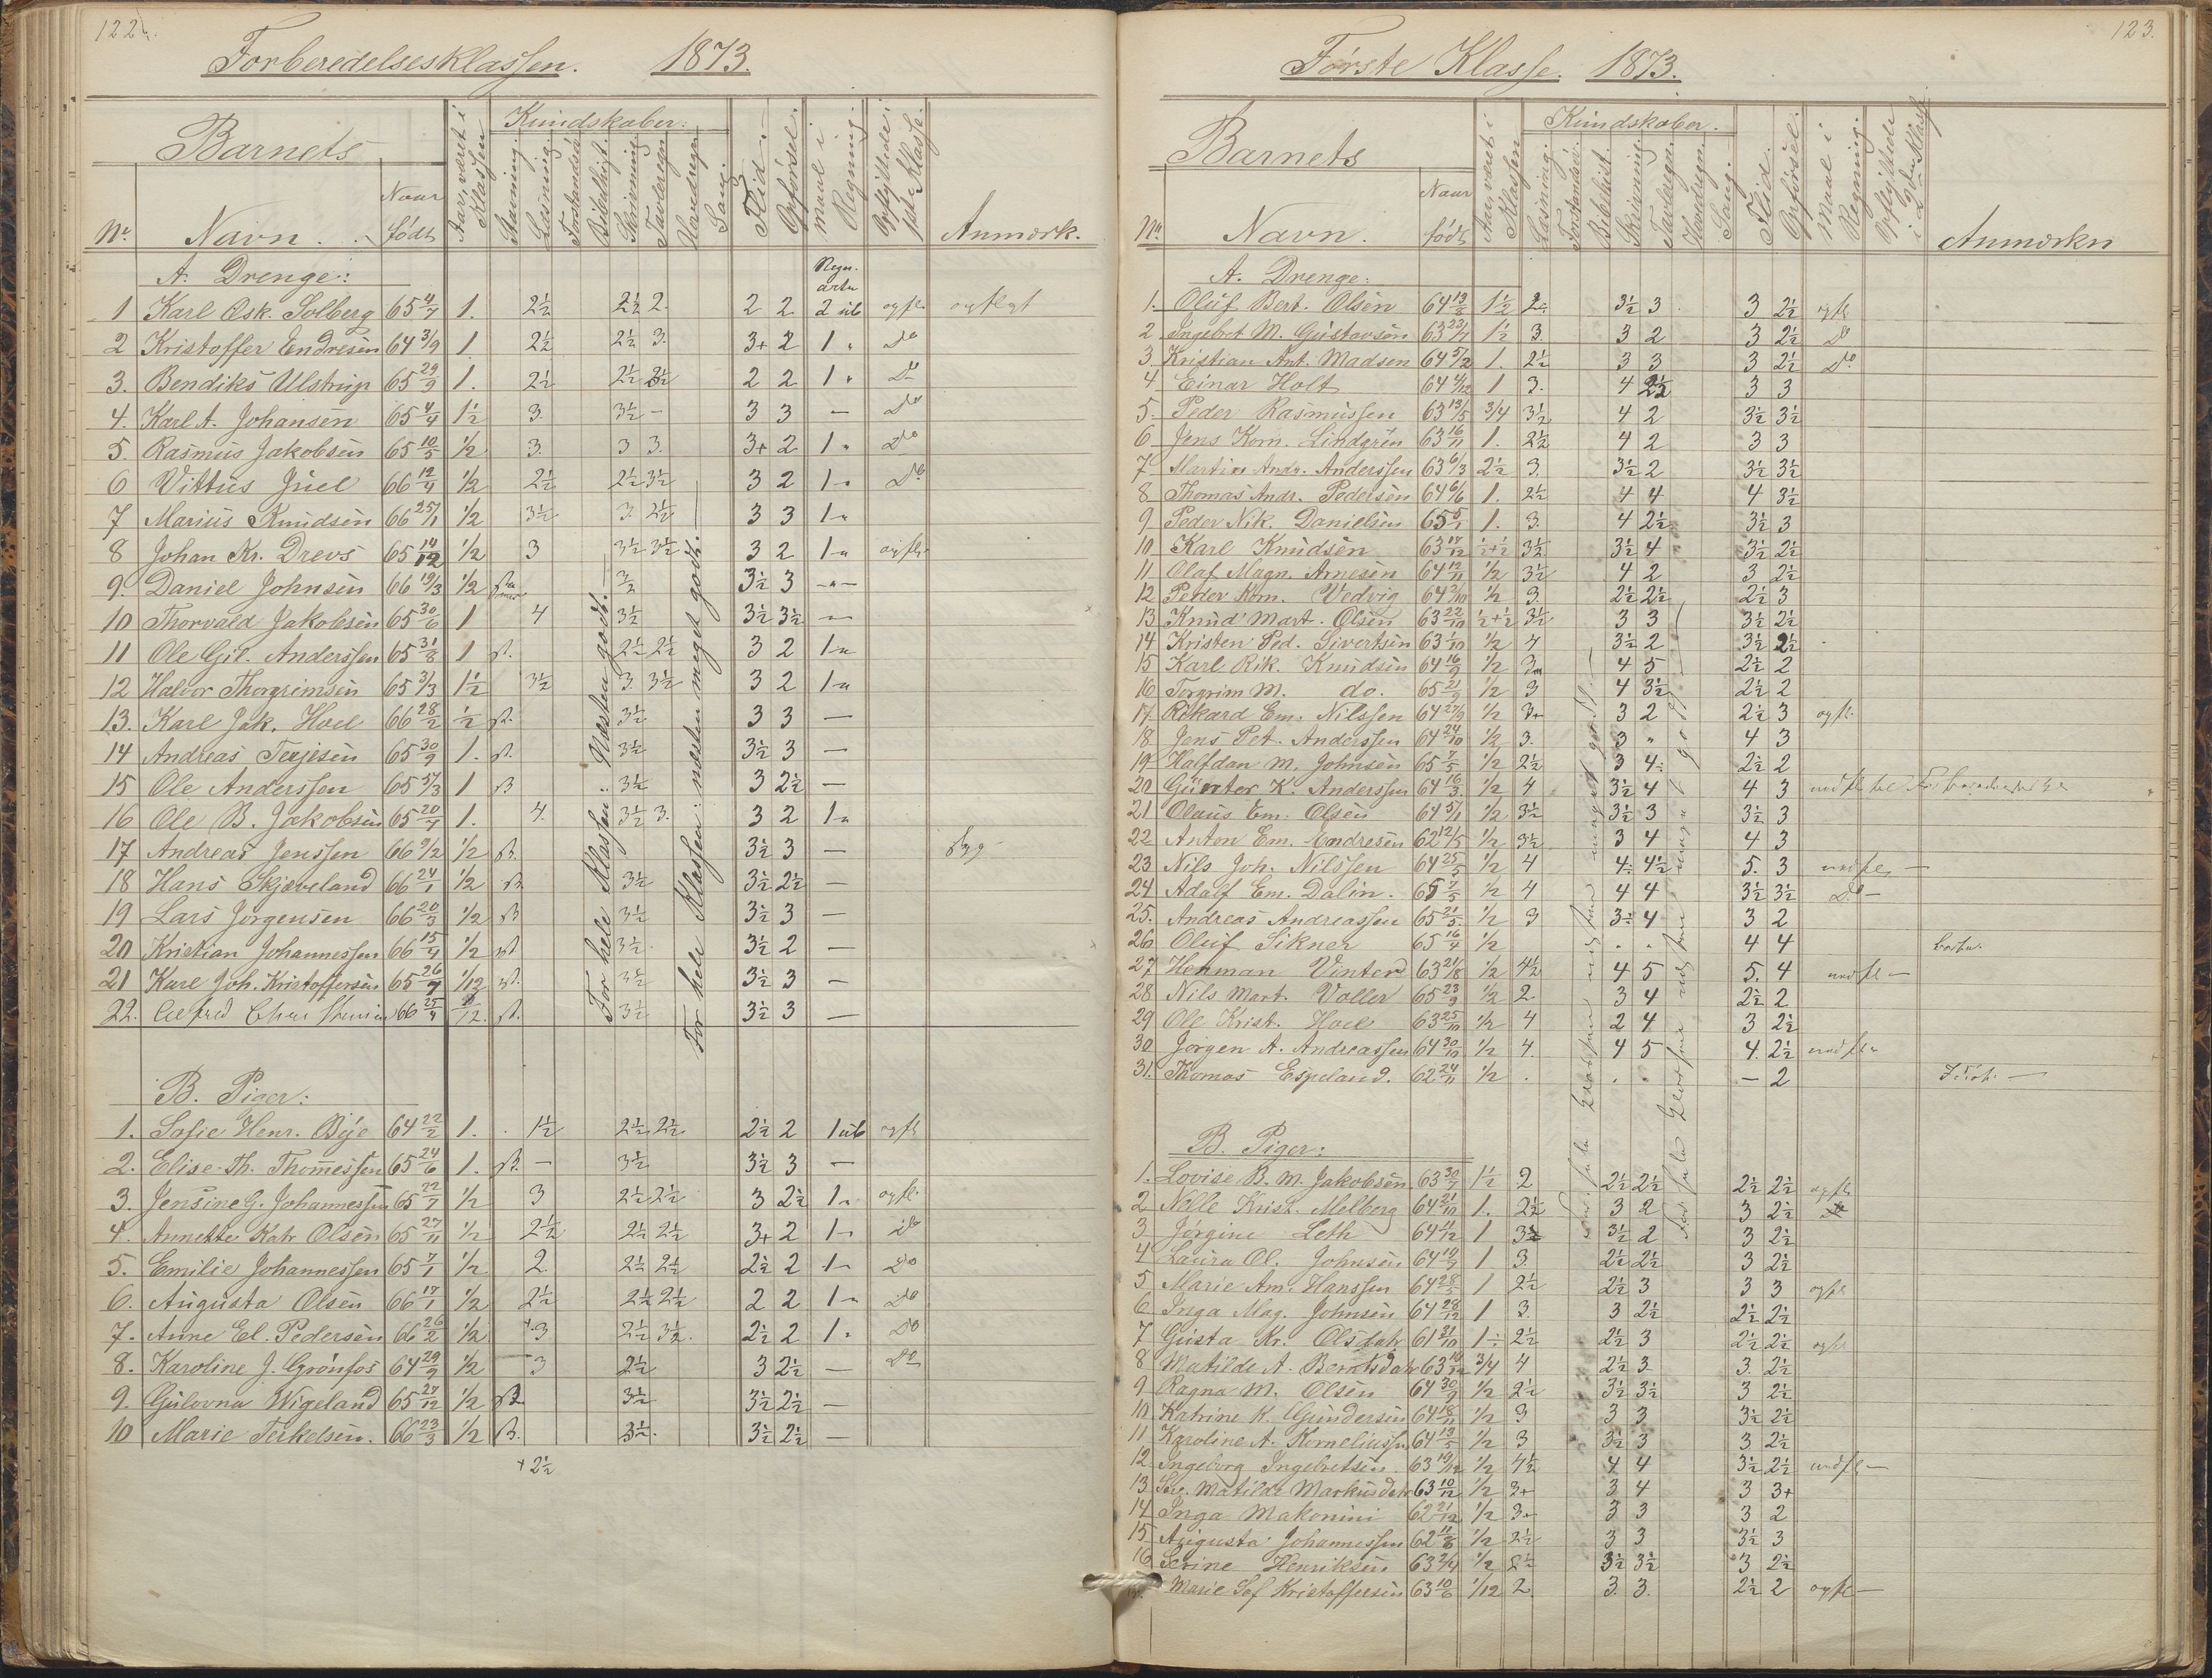 122
Forberedelsesklassen. 1873.
Barnets
No. Navn. Naar født
Aar været i Klassen
Kundskaber:
Stavning.
Læsning.
Forstandsø.
Bibelhist.
Skrivning.
Tavleregn.
Hovedregn.
Sang.
Flid.
Opførsel.
Maal i Regning.
Opflyttede i 1ste Klasse.
Anmærk.
A. Drenge:
1 Karl Osk. Solberg 65 4/7 1. 2½ 2½ 2. 2 2 opfl.
2 Kristoffer Endresen 64 3/9 1 2½ 2½ 3. 3+ 2 1 " Do
3. Bendiks Ulstrup 65 29/9 1. 2½ 2½ 2 2 1 " Do
4. Karl A. Johansen 65 4/4 1½ 3. 3½ - 3 3 — Do
5. Rasmus Jakobsen 65 10/5 1/2 3. 3 3. 3+ 2 1 " Do
6 Vittus Juel 66 12/4 1/2 2½ 2½ 3½ 3 2 1 " Do
7 Marius Knudsen 66 25/1 1/2 3½ 3. 2½ 3 3 1 "
8 Johan Kr. Drevs 65 14/12 1/2 3 3½ 3½ 3 2 1 " opfl.
9. Daniel Johnsen 66 19/3 1/2 3½ 3 - " -
10 Thorvald Jakobsen 65 30/6 1 4 3½ 3½ 3½ —
11 Ole Git. Anderssen 65 31/8 1 st. 2½ 2½ 3 2 1 "
12 Halvor Thorgrimsen 65 31/3 1½ 3½ 3. 3½ 3 2 1 "
13. Karl Jak. Hoel 66 28/2 1/2 st. 3½ 3 3 —
14 Andreas Terjesen 65 30/9 1. st. 3½ 3½ 3 —
15 Ole Anderssen 65 1 st 3½ 3 2½ —
16 Ole B. Jakobsen 65 20/7 1. 4. 3½ 3. 3 2 1 "
17 Andreas Jenssen 66 9/2 1/2 st. 3½ 3 —
18 Hans Skjæveland 66 24/1 1/2 st. 3½ 3½ 2½ —
19 Lars Jørgensen 66 20/3 1/2 st 3½ 3½ 3 —
20 Kristian Johannessen 66 15/4 1/2 st. 3½ 3½ 2 —
21 Karl Joh. Kristoffersen 65 26/7 1/12 st. 3½ 3½ 3 —
22. 66 25/4 st. 3½ 3½ 3 —
For hele Klassen: Næsten godt. —
For hele Klassen: næsten meget godt. —
B. Piger:
1. Sofie Henr. Bye 64 22/2 1. 1½ 2½ 2½ 2½ 2 opfl
2. Elise Th. Thomessen 65 24/6 1. st. — 3½ 3½ 3 —
3. Jensine G. Johannessen 65 22/7 1/2 3 2½ 2½ 3 2½ 1 " opfl.
4. Annette Katr Olsen 65 27/11 1/2 2½ 2½ 2½ 3+ 2 1 " do
5. Emilie Johannessen 65 7/1 1/2 2. 2½ 2½ 2½ 2 1 " Do
6. Augusta Olsen 66 17/1 1/2 2½ 2½ 2½ 2 2 1 " Do
7. Anne El. Pedersen 66 26/2 1/2 +3 2½ 3½. 2½ 2 1 " Do
8. Karoline J. Grønfos 64 29/9 1/2 3 2½ 3 2½ — Do
9. Gulovna Wigeland 65 27/12 1/2 st. 3½ 3½ 2½ —
10 Marie Terkelsen. 66 23/3 1/2 st. 3½. 3½ 2½ —
+ 2½
123.
Første Klasse. 1873.
Barnets
No. Navn. Naar født
Aar været i Klassen
Kundskaber.
Læsning.
Forstandsø.
Bibelhist.
Skrivning.
Tavleregn.
Hovedregn.
Sang.
Flid.
Opførsel.
Maal i Regning.
Opflyttede i 2den Klasse.
Anmærkn
A. Drenge:
1. Oluf Bert. Olsen 64 13/2 1½ 2. 3½ 3 3 2½ opfl
2 Ingebret M. Gustavsen 63 23/7 1½ 3. 3 2 3 2½ Do
3 Kristian Ant. Madsen 64 5/2 1. 2½ 3 3 3 2½ Do
4 Einar Holt 64 4/12 1 3. 4 2½ 3 3
5. Peder Rasmussen 63 13/5 3/4 3½ 4 2 3½ 3½
6 Jens Korn. Lindgren 63 16/11 1. 2½ 4 2 3 3
7 Martin Andr. Anderssen 63 6/3 2½ 3. 3½ 2 3½ 3½
8 Thomas Andr. Pedersen 64 6/6 1. 2½ 4 4 4 3½
9 Peder Nik. Danielsen 65 5/1 1. 3. 4 2½ 3½ 3
10 Karl Knudsen 63 17/12 ½+½ 3½ 3½ 4 3½ 2½
11 Olaf Magn. Arnesen 64 12/11 1/2 3½ 4 2 3 2½
12 Peder Korn. Vedvig 64 2/10 1/2 3. 2½ 2½ 2½ 3
13 Knud Mart. Olsen 63 22/10 ½+½ 3½ 3 3 3½ 2½
14 Kristen Ped. Sivertsen 63 1/10 1/2 4 3½ 2 3½ 2½
15 Karl Rik. Knudsen 64 16/9 1/2 3 4 5 2½ 2
16 Torgrim M. do. 65 21/9 1/2 3 4 3½ 2½ 2
17. Rikard Em. Nilssen 64 27/9 1/2 3+ 3 2 2½ 3 opfl.
18. Jens Pet. Anderssen 64 24/10 1/2 3. 3 " 4 3
19 Halfdan M. Johnsen 65 7/5 1/2 2½ 3 4 2½ 2
20 K. Anderssen 64 16/3 1/2 4 3½ 4 4 3
21 Olaus Em. Olsen 64 1/2 3½ 3½ 3 3½ 3
22 Anton Em. Andresen 62 12/5 1/2 3½ 3 4 4 3
23. Nils Joh. Nilssen 64 25/5 1/2 4 4 4½ 5. 3 nedfl. —
24 Adolf Em. Dalin. 65 7/5 1/2 4 4 4 3½ 3½ Do —
25. Andreas Andreassen 65 21/5 1/2 3 3½ 4 3 2
26 Oluf Sikner 65 16/4 1/2 . . 4 4
27 Herman Vinter 63 21/8 1/2 4½ 4 5 5. 4 nedfl —
28 Nils Mart. Voller 65 23/9 1/2 2 3 4 2½ 2
29 Ole Krist. Hoel 63 25/10 1/2 4 2 4 3 2½
30 Jørgen A. Andreassen 64 30/10 1/2 4. 4 5 4. 2½ nedfl.
31. Thomas Espeland. 62 24/11 1/2 . . . — 2
B. Piger:
1. Lovise B. M. Jakobsen 63 30/7 1½ 2 2½ 2½ 2½ 2½ opfl
2 Nelle Krist. Melberg 64 21/10 1. 2½ 3 2 3 2½
3 Jørgine Leth 64 1 3½ 3½ 2 3 2½
4 Laura Ol. Johnsen 64 19/9 1 3. 2½ 2½ 3 2½
5 Marie Am. Hanssen 64 28/5 1 2½ 2½ 3 3 3 opfl
6 Inga Mag. Johnsen 64 28/12 1 3. 3 2½ 2½ 2½
7 Gusta Kr. Olsdatr 61 31/10 1 2½ 2½ 3 2½ 2½ opfl
8 Matilde A. Berntsdatr 63 3/4 4 2½ 3 3. 2½
9 Ragna M. Olsen 64 30/9 1/2 2½ 3½ 3½ 3 2½
10 Katrine K. Gundersen 64 18/11 1/2 3 3 3 3½ 2½
11 Karoline A. Korneliussen 64 13/5 1/2 3 3½ 3 3 2½
12 Ingeborg Ingebretsen 63 19/12 1/2 4½ 4 4 3½ 2½ nedfl —
13 Matilde Markusdatr 63 10/12 1/2 3+ 3 4 3 3+
14 Inga Makonini 62 21/12 1/2 3+ 3 3 3 2
15 Augusta Johannessen 62 11/8 1/2 2½ 3 3 3½ 3
16 Serine Henriksen 63 2/4 1/2 2½ 3½ 3½ 3 2½
Marie Sof Kristoffersen 63 10/6 1/12 2. 3. 3. 2½ 2 opfl —